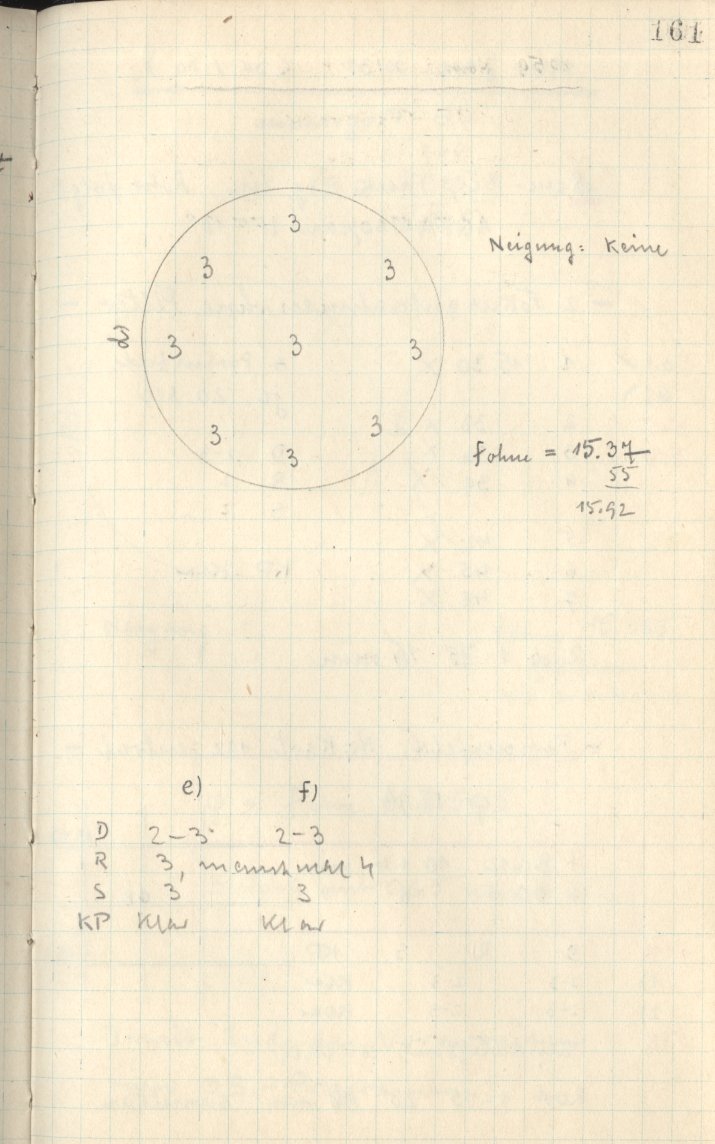 161
3
3 3
Neigung: Keine
3 3 3
3 3
3
fohne = 15.37
55
15.92
e) f)
D 2-3 2-3
R 3, manchmal 4
S 3 3
KP Klar Klar